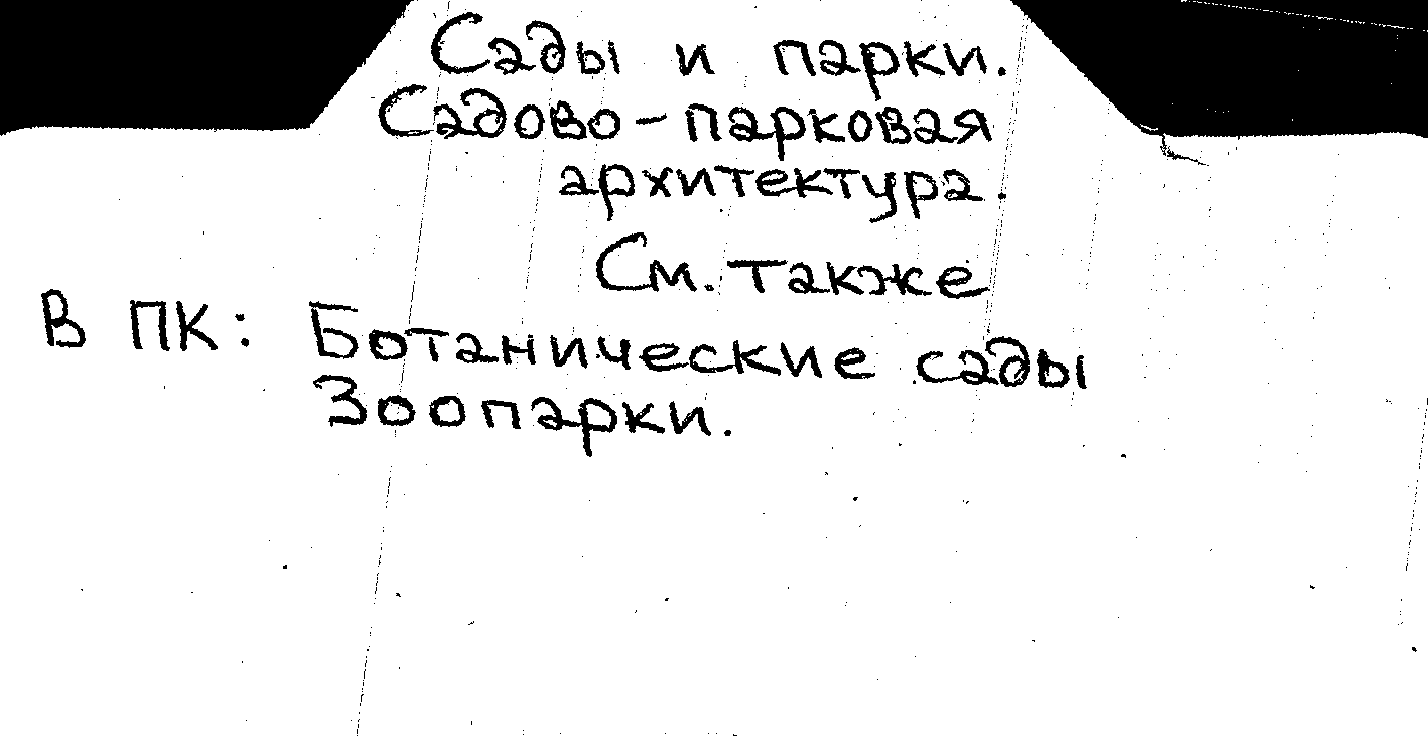 Сады и парки.
Садово-парковая
архитектура.
См. также
В ПК: Ботанические сады
Зоопарки.